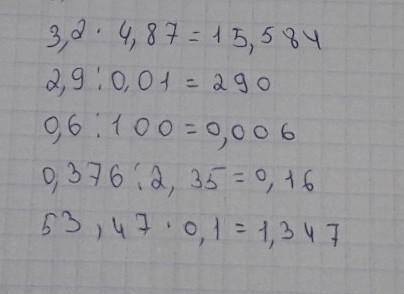 3,2 · 4,87 = 15,584
2,9 : 0,01 = 290
0,6 : 100 = 0,006
0,376 : 2,35 = 0,16
53,47 · 0,1 = 1,347